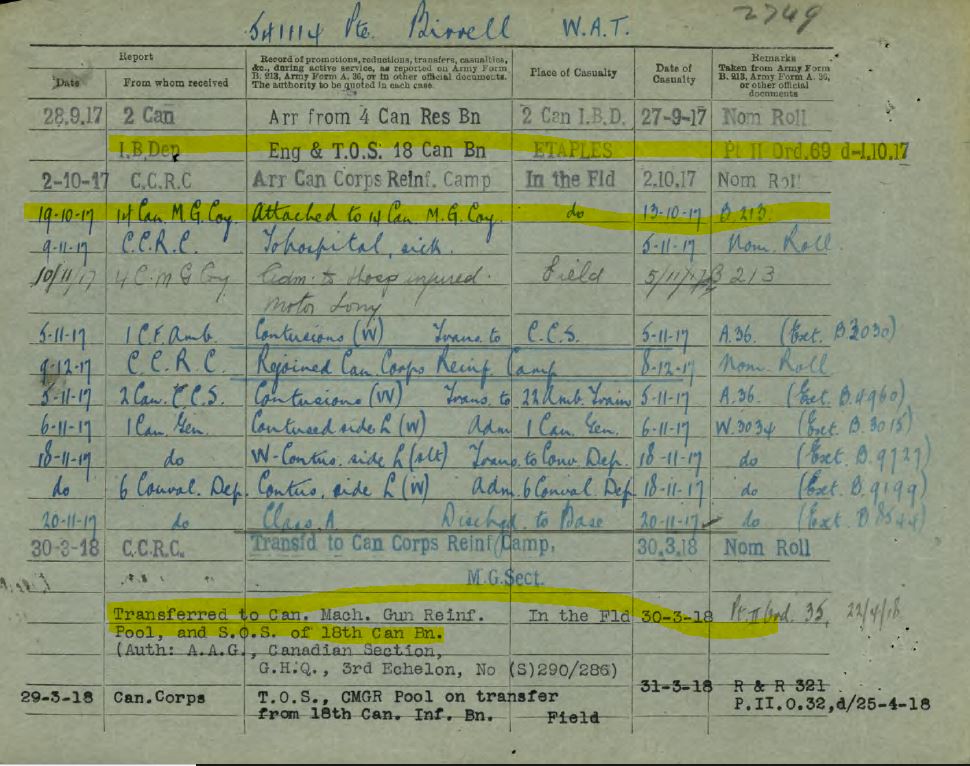 541114 Pte. Birrell W.A.T. 2749
Report
Date
From whom received
Record of promotions, reductions, transfers, casualties,
&c., during active service, as reported on Army Form
B. 213, Army Form A. 36, or in other official documents.
The authority to be quoted in each case.
Place of Casualty
Date of
Casualty
Remarks
Taken from Army Form
B. 213, Army Form A. 36,
or other official
documents
28.9.17 2 Can Arr from 4 Can Res Bn 2 Can I.B.D. 27-9-17 Nom Roll
I.B.Dep Eng & T.O.S. 18 Can Bn ETAPLES Pt II Ord.69 d-1.10.17
2-10-17 C.C.R.C Arr Can Corps Reinf. Camp In the Fld 2.10.17 Nom Roll
19-10-17 14 Can M.G. Coy Attached to 14 Can M.G. Coy. do 13-10-17 B.213.
9-11-17 C.C.R.C. To hospital, sick. 5-11-17 Nom. Roll.
10/11/17 4 C.M G Coy Adm. to Hosp injured. Field 5/11/17 B 213
Motor Lorry
5-11-17 1 C.F. Amb. Contusions (W) Trans. to C.C.S. 5-11-17 A.36. (Ext. B3030)
9-12-17 C.C.R.C. Rejoined Can. Corps Reinf. Camp 8-12-17 Nom. Roll
5-11-17 2 Can. C.C.S. Contusions (W) Trans. to 22 Amb. Train 5-11-17 A.36. (Ext. B.4960)
6-11-17 1 Can. Gen. Contused side L (W) Adm 1 Can. Gen. 6-11-17 W.3034 (Ext. B.3015)
18-11-17 do W-Contus. side L (slt) Trans. to Conv. Dep. 18-11-17 do (Ext. B.9727)
do 6 Conval. Dep. Contus. side L (W) Adm. 6 Conval. Dep 18-11-17 do (Ext. B.9199)
20-11-17 do Class. A Dischgd. to Base 20-11-17 do (Ext. B 8544)
30-3-18 C.C.R.C. Transfd to Can Corps Reinf Camp. 30.3.18 Nom Roll
M.G.Sect.
Transferred to Can. Mach. Gun Reinf. In the Fld 30-3-18 Pt. II Ord. 35, 22/4/18
Pool, and S.O.S. of 18th Can Bn.
(Auth: A.A.G., Canadian Section,
G.H.Q., 3rd Echelon, No (S)290/286)
29-3-18 Can.Corps T.O.S., CMGR Pool on transfer 31-3-18 R & R 321
from 18th Can. Inf. Bn. Field P.II.O.32,d/25-4-18